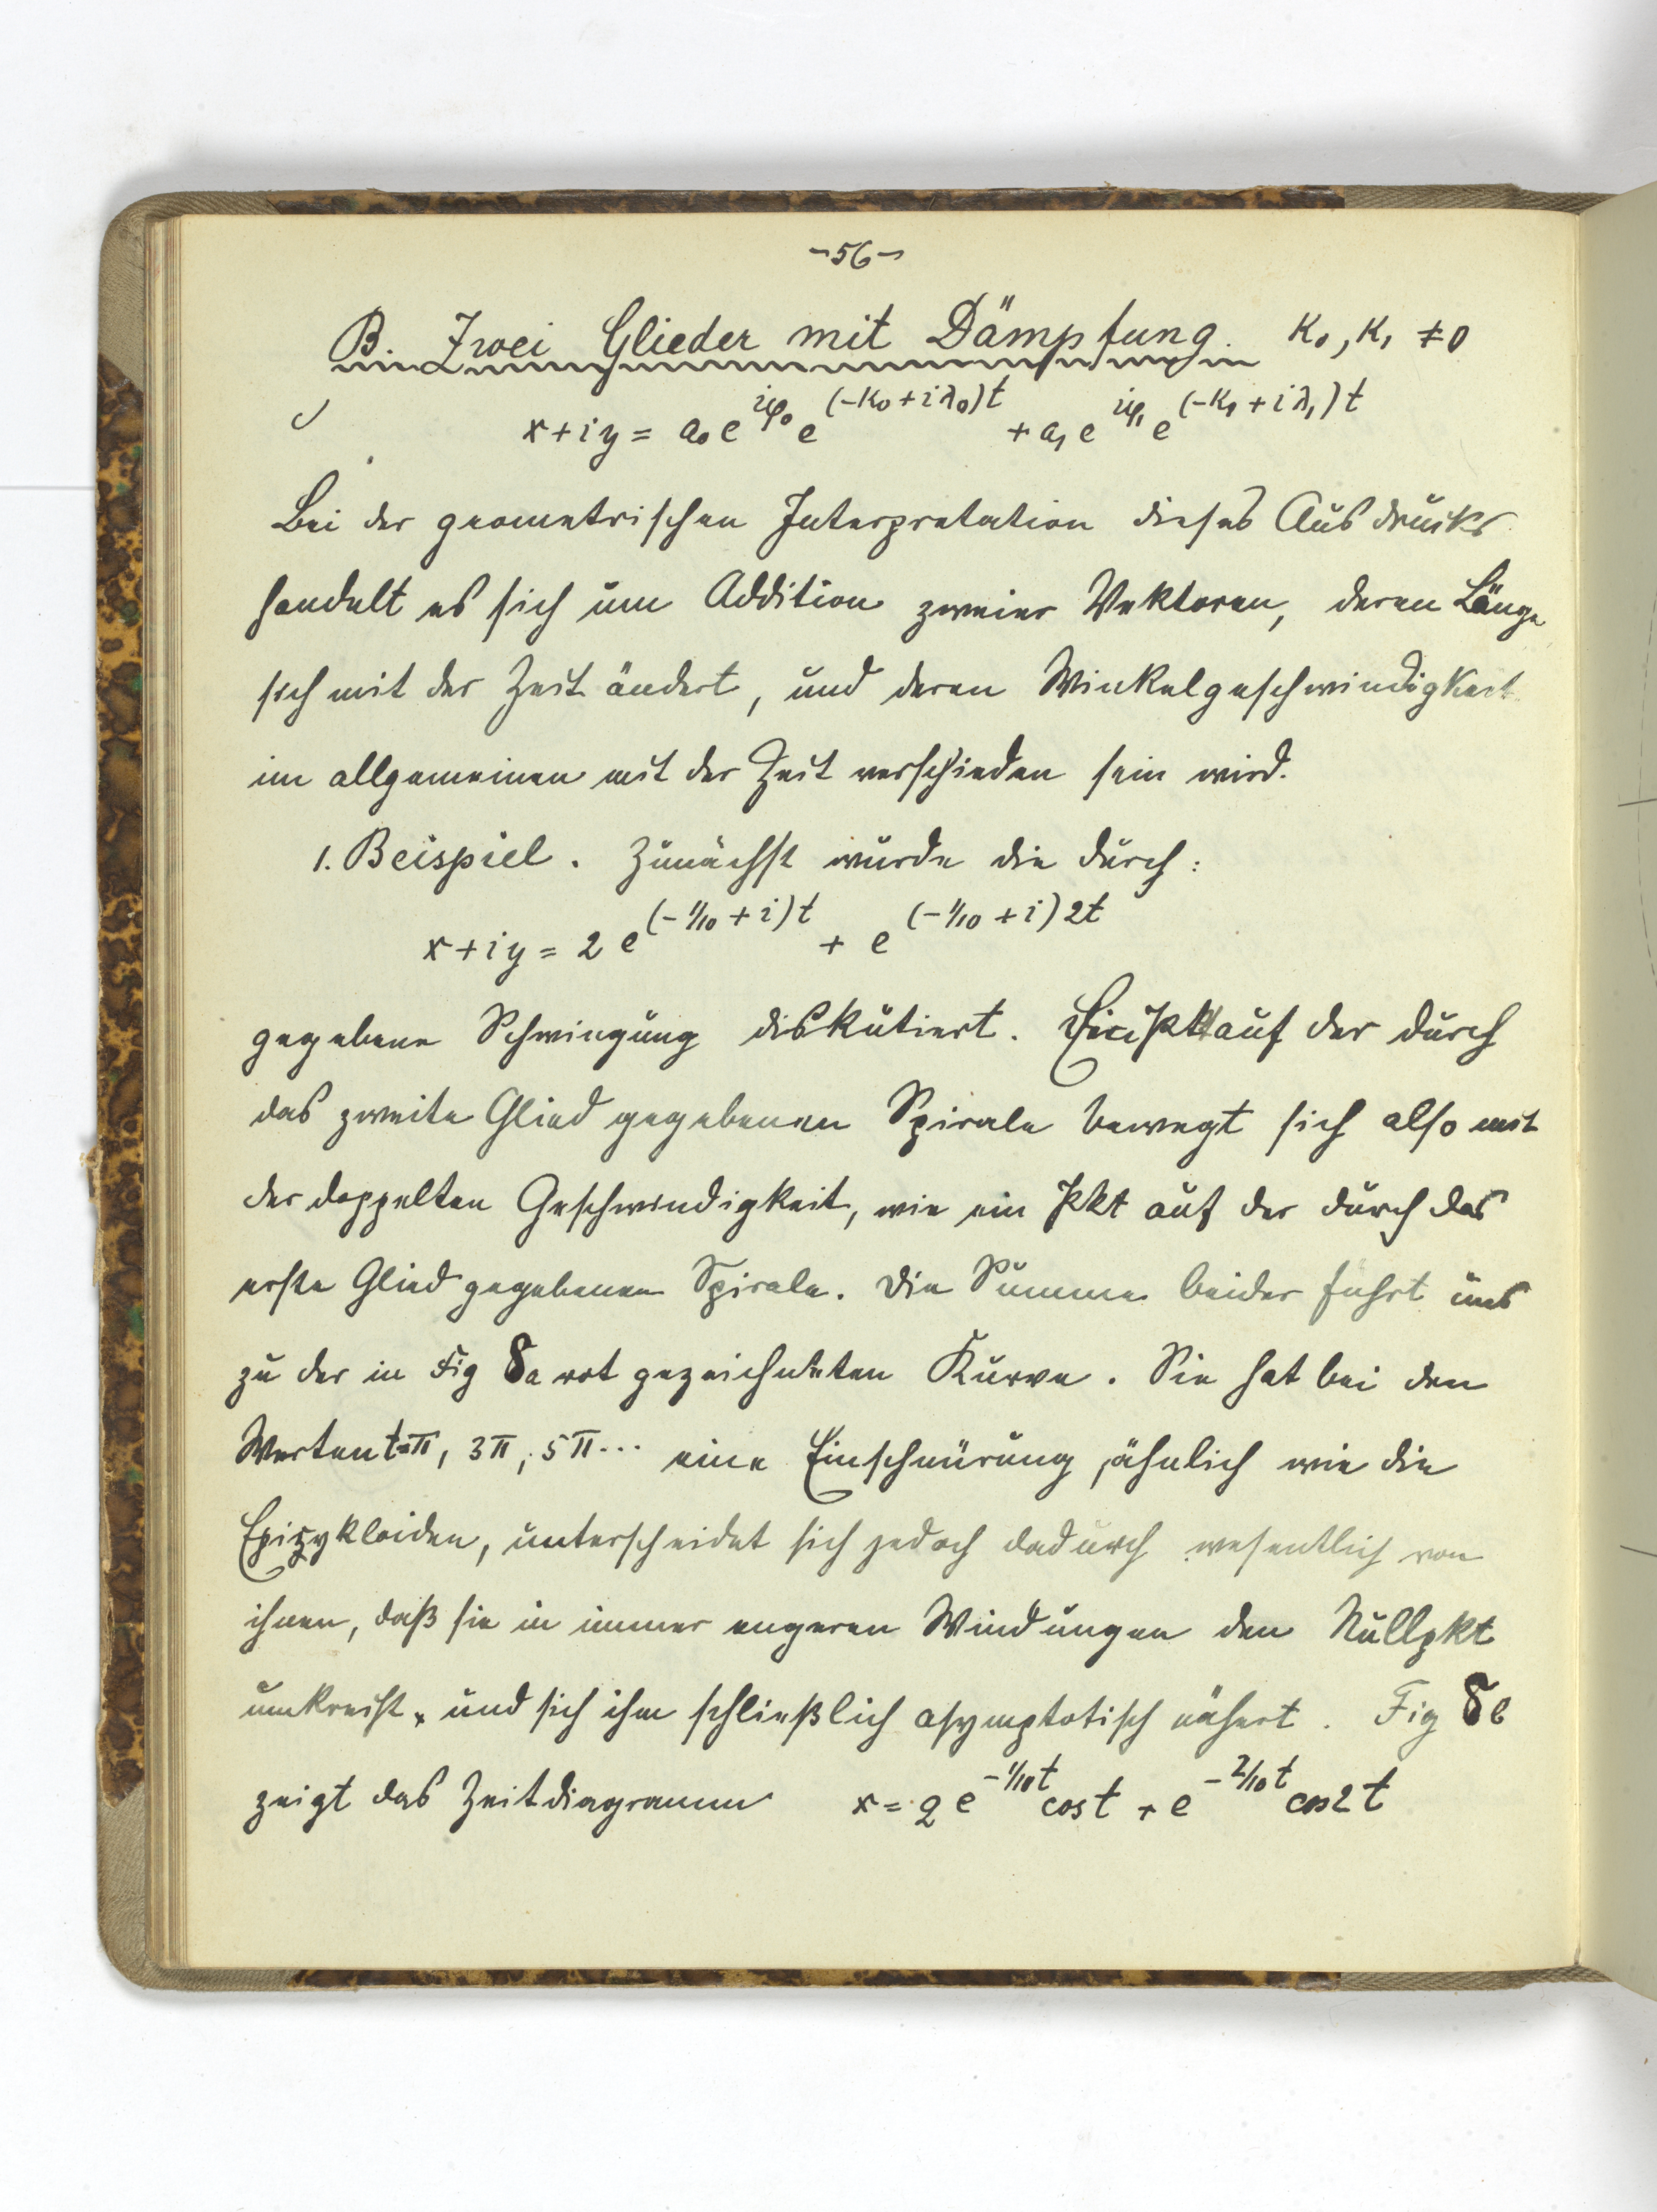 -56-
B. Zwei Glieder mit Dämpfung. κ₀, κ₁ ≠ 0
x+iy = a₀ e^{iφ₀} e^{(-κ₀+iλ₀)t} + a₁ e^{iφ₁} e^{(-κ₁+iλ₁)t}
Bei der geometrischen Interpretation dieses Ausdrucks
handelt es sich um Addition zweier Vektoren, deren Länge
sich mit der Zeit ändert, und deren Winkelgeschwindigkeit
im allgemeinen mit der Zeit verschieden sein wird.
1. Beispiel. Zunächst wurde die durch:
x+iy = 2 e^{(-1/10+i)t} + e^{(-1/10+i)2t}
gegebene Schwingung diskutiert. Ein Pkt auf der durch
das zweite Glied gegebenen Spirale bewegt sich also mit
der doppelten Geschwindigkeit, wie ein Pkt auf der durch das
erste Glied gegebenen Spirale. Die Summe beider führt uns
zu der in Fig 8a rot gezeichneten Kurve. Sie hat bei den
Werten t=π, 3π, 5π... eine Einschnürung, ähnlich wie die
Epizykloiden, unterscheidet sich jedoch dadurch wesentlich von
ihnen, daß sie in immer engeren Windungen den Nullpkt
umkreist, und sich ihm schließlich asymptotisch nähert. Fig 8b
zeigt das Zeitdiagramm x = 2 e^{-1/10 t} cos t + e^{-2/10 t} cos 2t